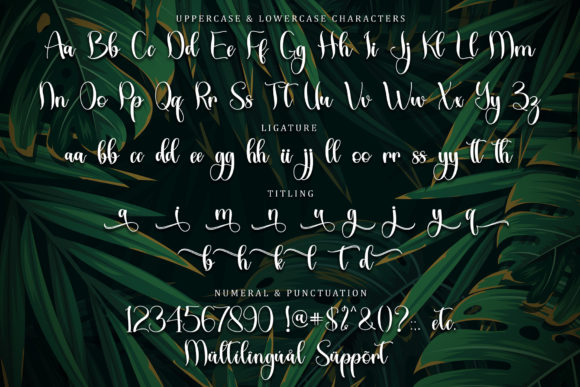 UPPERCASE & LOWERCASE CHARACTERS
Aa Bb Cc Dd Ee Ff Gg Hh Ii Jj Kk Ll Mm
Nn Oo Pp Qq Rr Ss Tt Uu Vv Ww Xx Yy Zz
LIGATURE
aa bb cc dd ee gg hh ii jj ll oo rr ss yy tt th
TITLING
a i m n u g j y q
b h k l t d
NUMERAL & PUNCTUATION
1234567890 !@#$%^&()?:;. etc.
Maltilingual Support